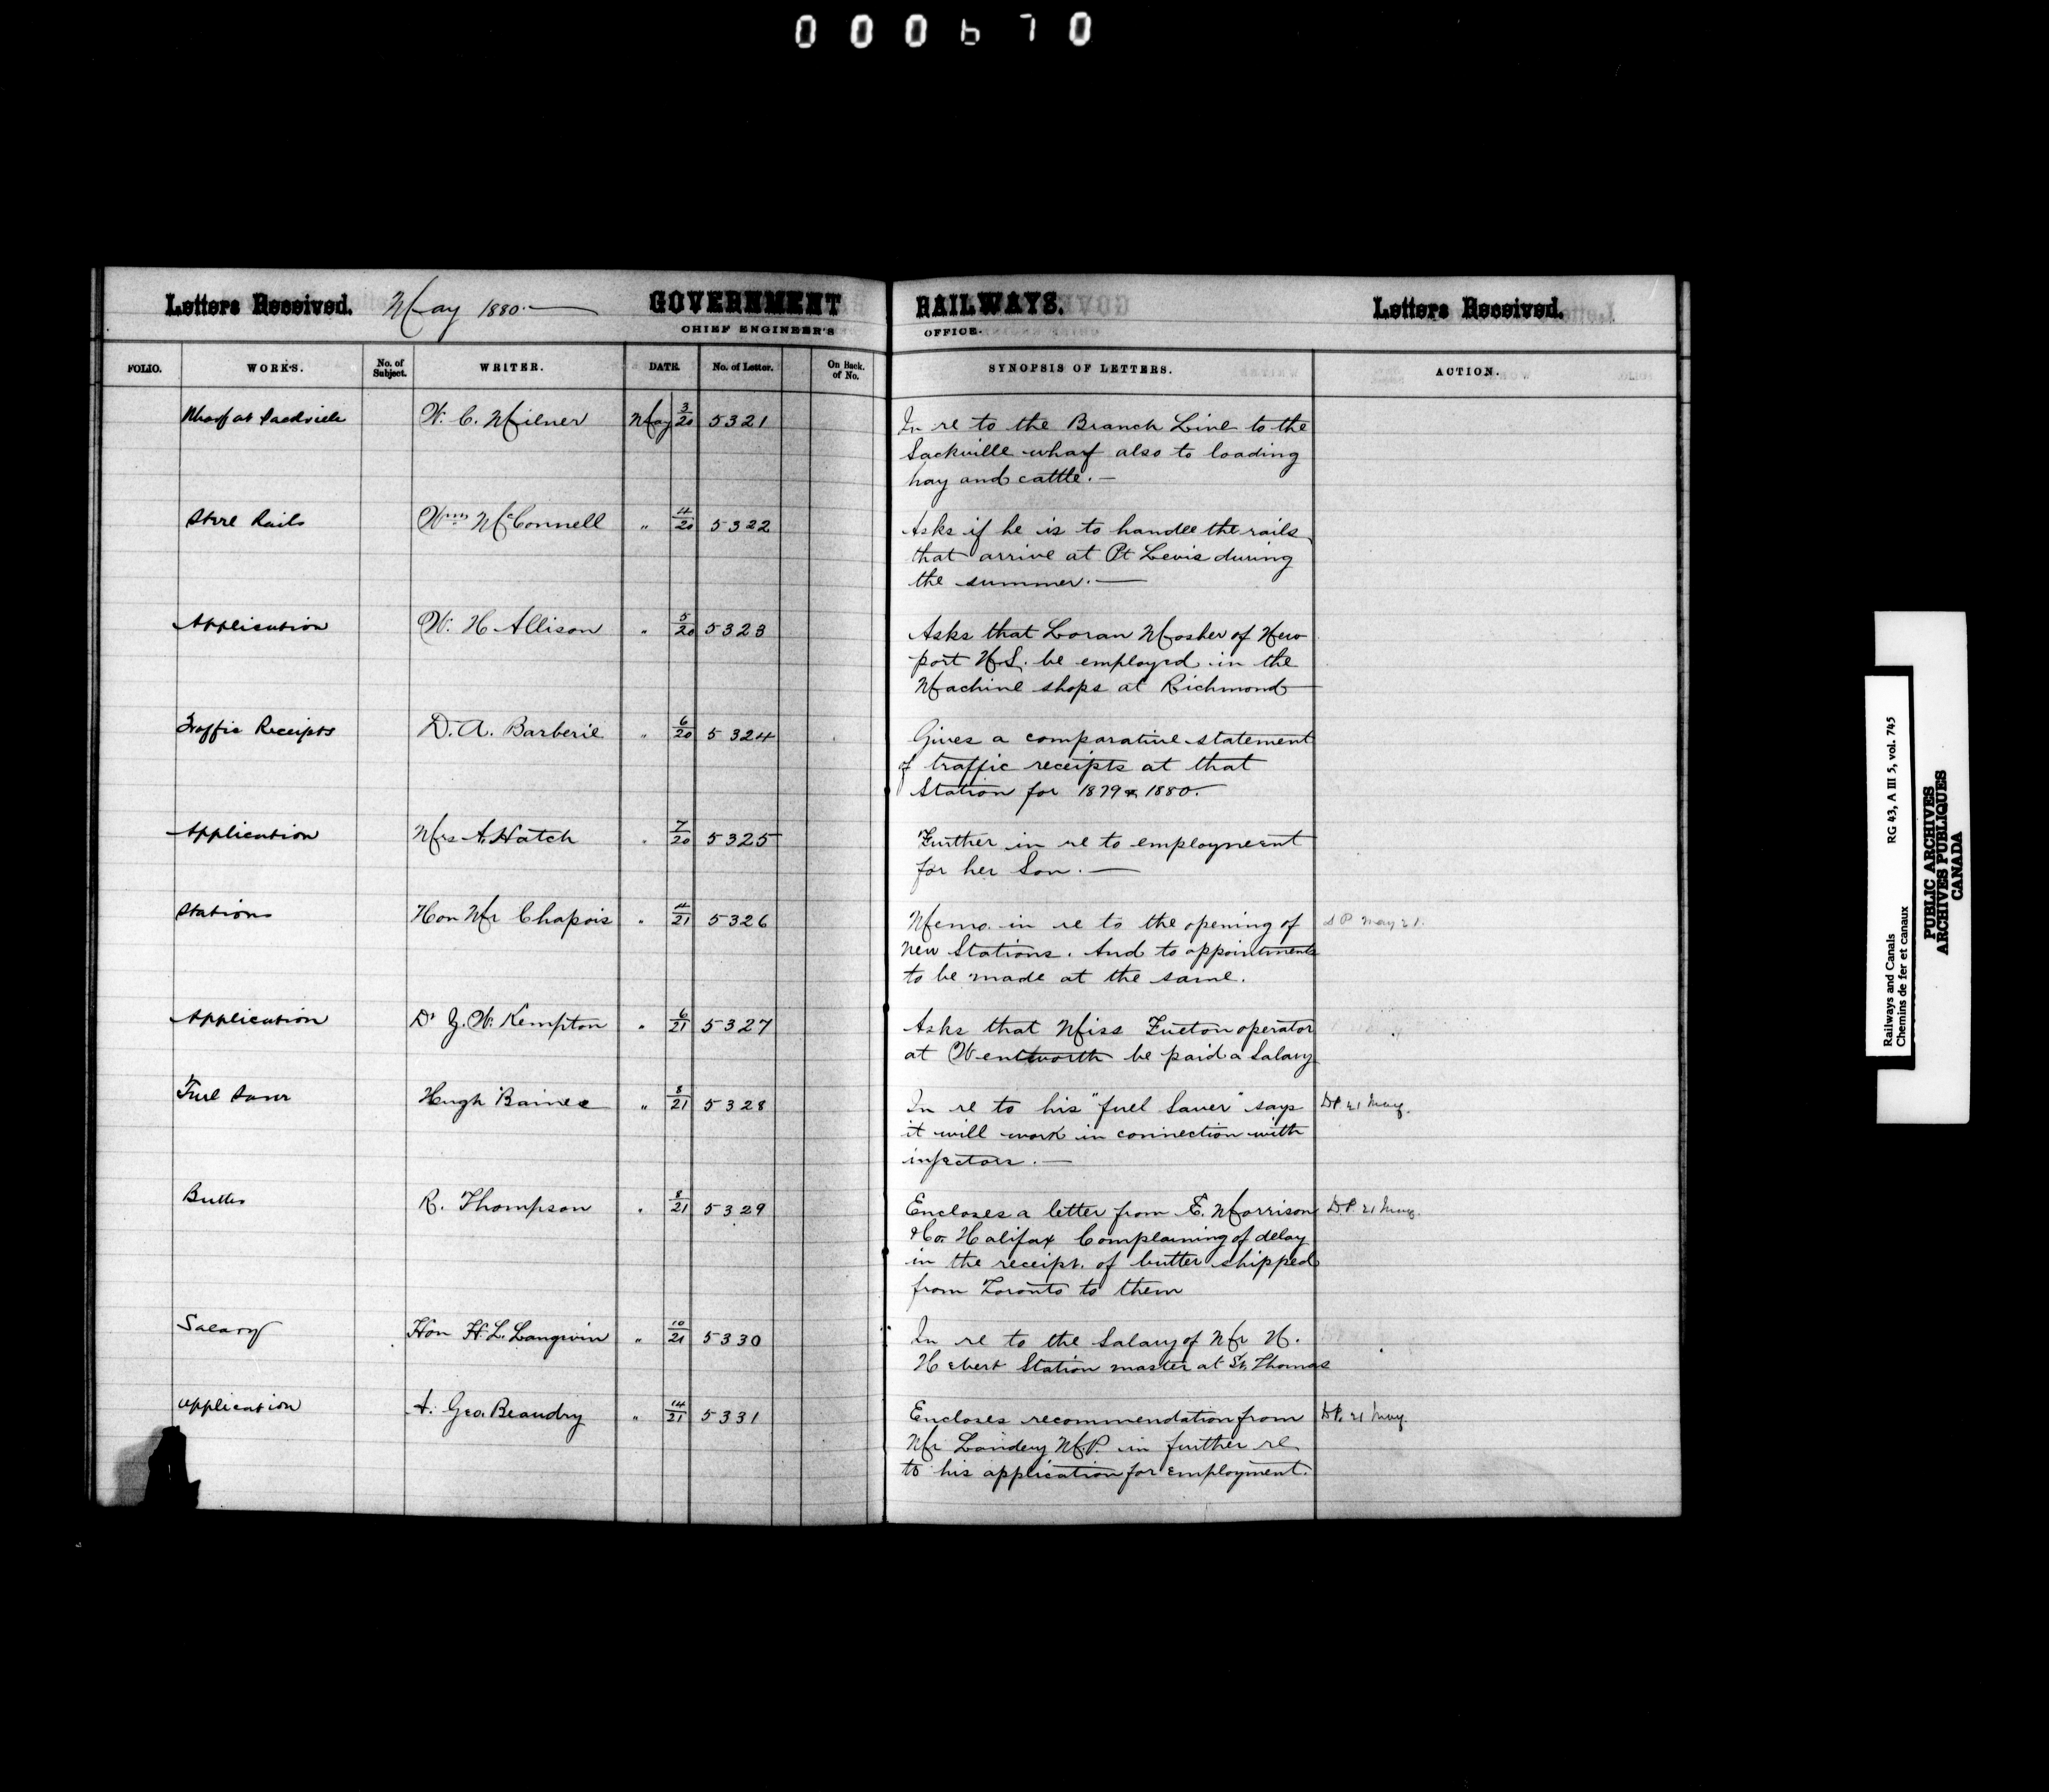 000670
Letters Received. May 1880.— GOVERNMENT RAILWAYS. Letters Received.
CHIEF ENGINEER'S OFFICE.
FOLIO. WORKS. No. of Subject. WRITER. DATE. No. of Letter. On Back. of No. SYNOPSIS OF LETTERS. ACTION.
Wharf at Sackville W. C. Milner May 3/20 5321 In re to the Branch Line to the
Sackville wharf also to loading
hay and cattle.—
Steel Rails Wm McConnell " 4/20 5322 Asks if he is to handle the rails
that arrive at Pt Levis during
the summer.—
Application W. H Allison " 5/20 5323 Asks that Loran Mosher of New
port N.S. be employed in the
Machine shops at Richmond
Traffic Receipts D. A. Barberie " 6/20 5324 Gives a comparative statement
of traffic receipts at that
Station for 1879 & 1880.
Application Mrs A. Hatch " 7/20 5325 Further in re to employment
for her Son.—
Stations Hon Mr Chapois " 4/21 5326 Memo. in re to the opening of
new Stations. And to appointments
to be made at the same.
May 21.
Application Dr J. W. Kempton " 6/21 5327 Asks that Miss Fueton operator
at Wentworth be paid a Salary
Fuel Saver Hugh Baines " 8/21 5328 In re to his "fuel Saver" says DP. 21 May.
it will work in connection with
injectors.—
Butter R. Thompson " 8/21 5329 Encloses a letter from E. Morrison D.P. 21 May.
& Co. Halifax Complaining of delay
in the receipt. of butter shipped
from Toronto to them
Salary Hon H. L. Langevin " 10/21 5330 In re to the Salary of Mr N.
Hebert Station master at St. Thomas
application A. Geo. Beaudry " 14/21 5331 Encloses recommendation from DP. 21 May.
Mr Landery M.P. in further re
to his application for employment.
Railways and Canals RG 43, A III 5, vol. 745
Chemins de fer et canaux
PUBLIC ARCHIVES
ARCHIVES PUBLIQUES
CANADA